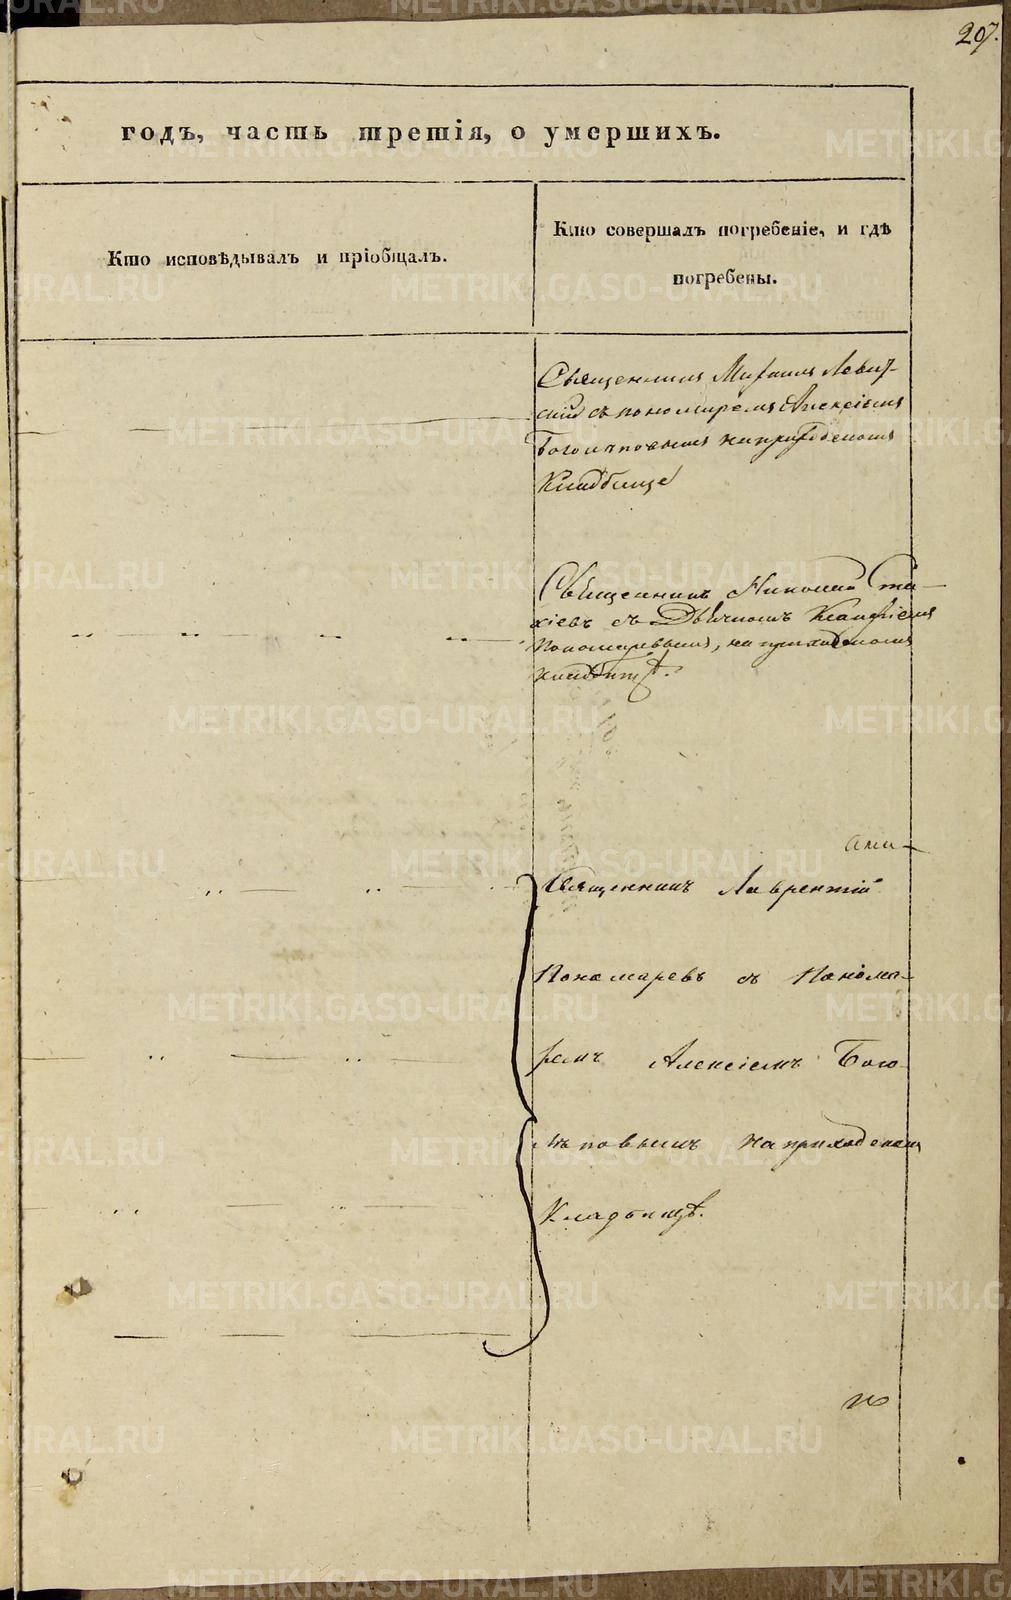 207.
годъ, часть третія, о умершихъ.
Кто исповѣдывалъ и пріобщалъ.
Кто совершалъ погребеніе, и гдѣ
погребены.
Священникъ Михаилъ Левит-
скій съ пономаремъ Алексіемъ
Боголѣповымъ на приходскомъ
Кладбище
Священникъ Николай
съ Дьячкомъ
Пономаревымъ, на приходскомъ
кладбищѣ.
Священникъ Лаврентій
Пономаревъ съ Понома-
ремъ Алексіемъ Бого-
лѣповымъ на приходскомъ
Кладбищѣ.
METRIKI.GASO-URAL.RU